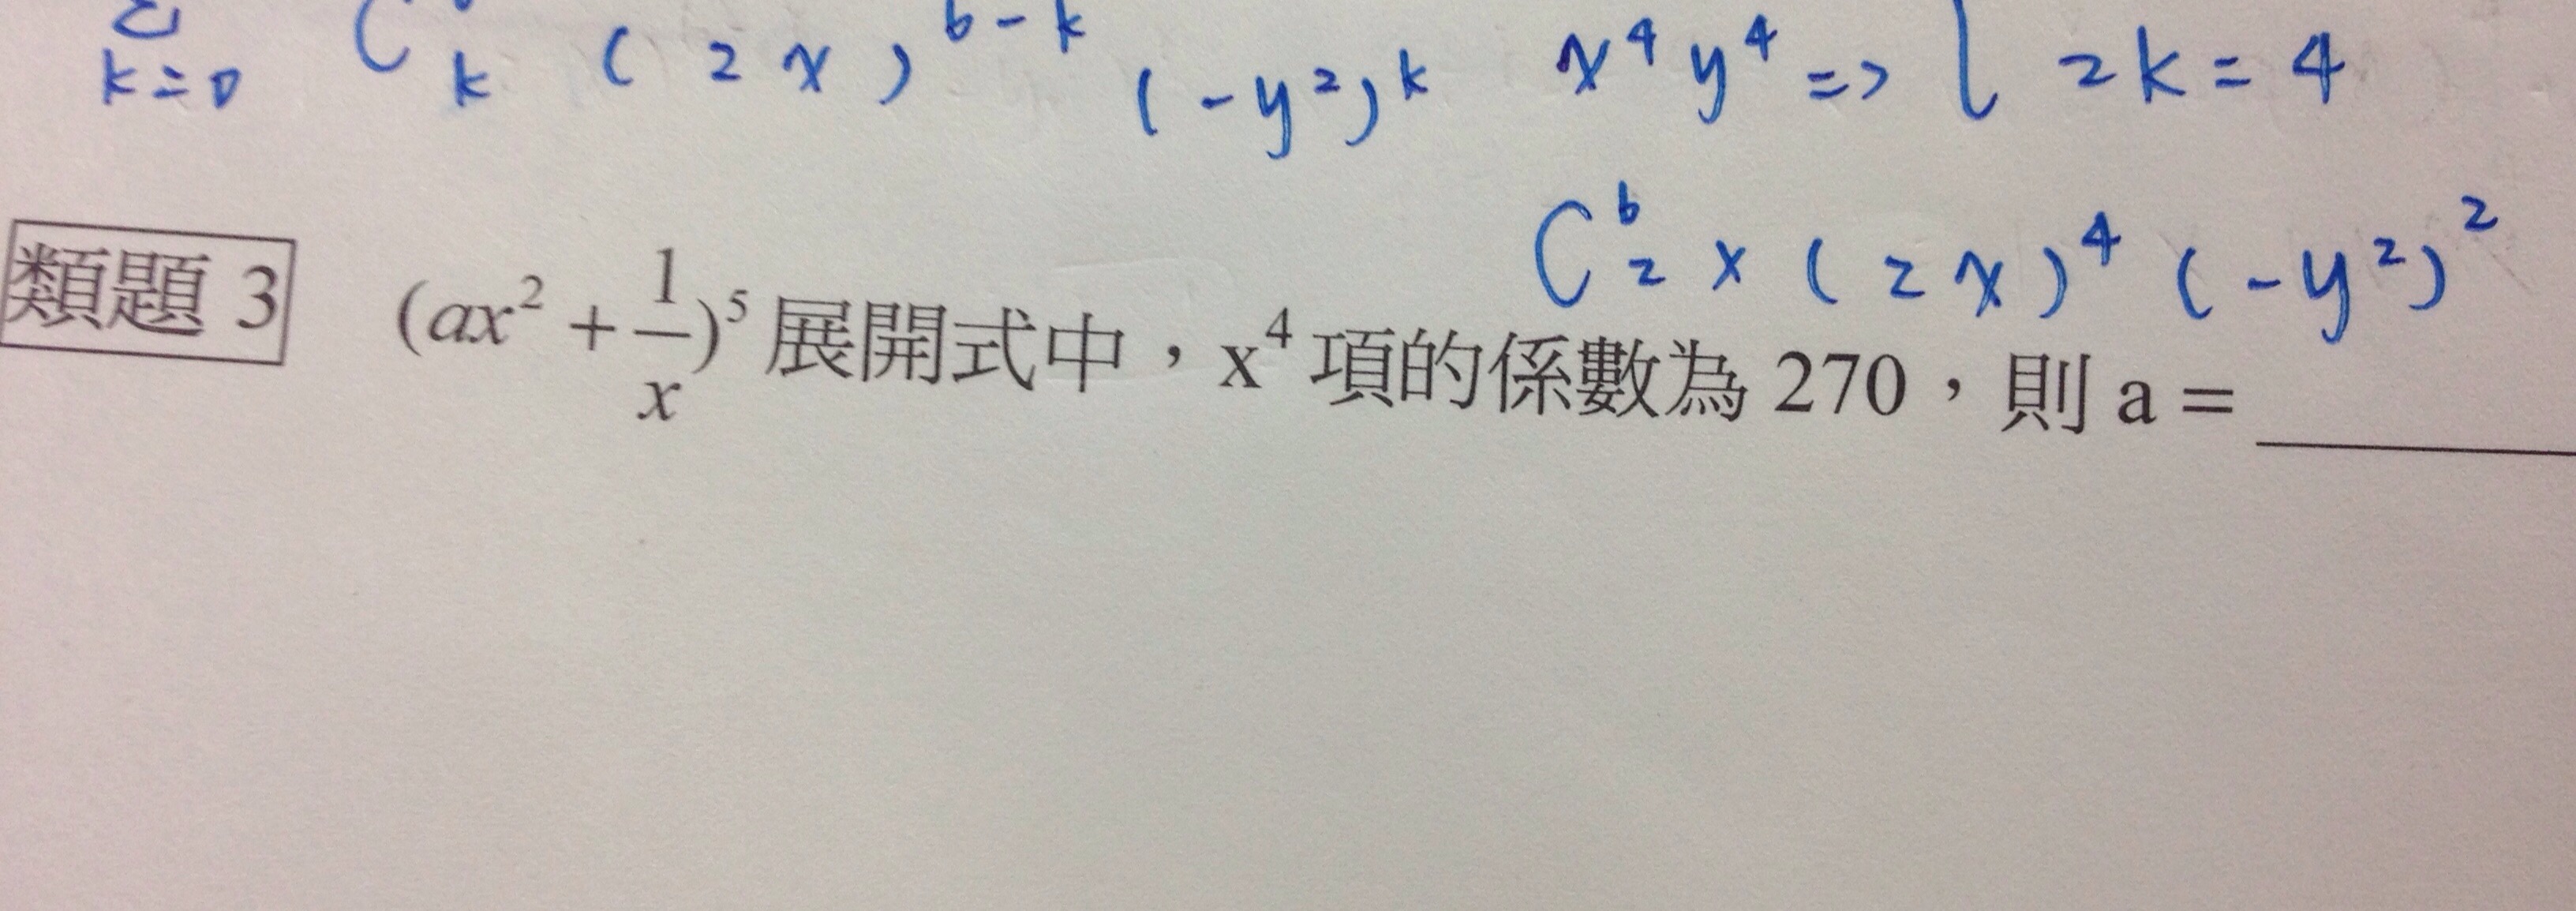 Σ k=0 C k (2x)^6-k (-y²)^k x⁴y⁴ => { 2k=4
C⁶₂ × (2x)⁴ (-y²)²
類題 3 (ax² + 1/x)⁵ 展開式中，x⁴ 項的係數為 270，則 a = ______